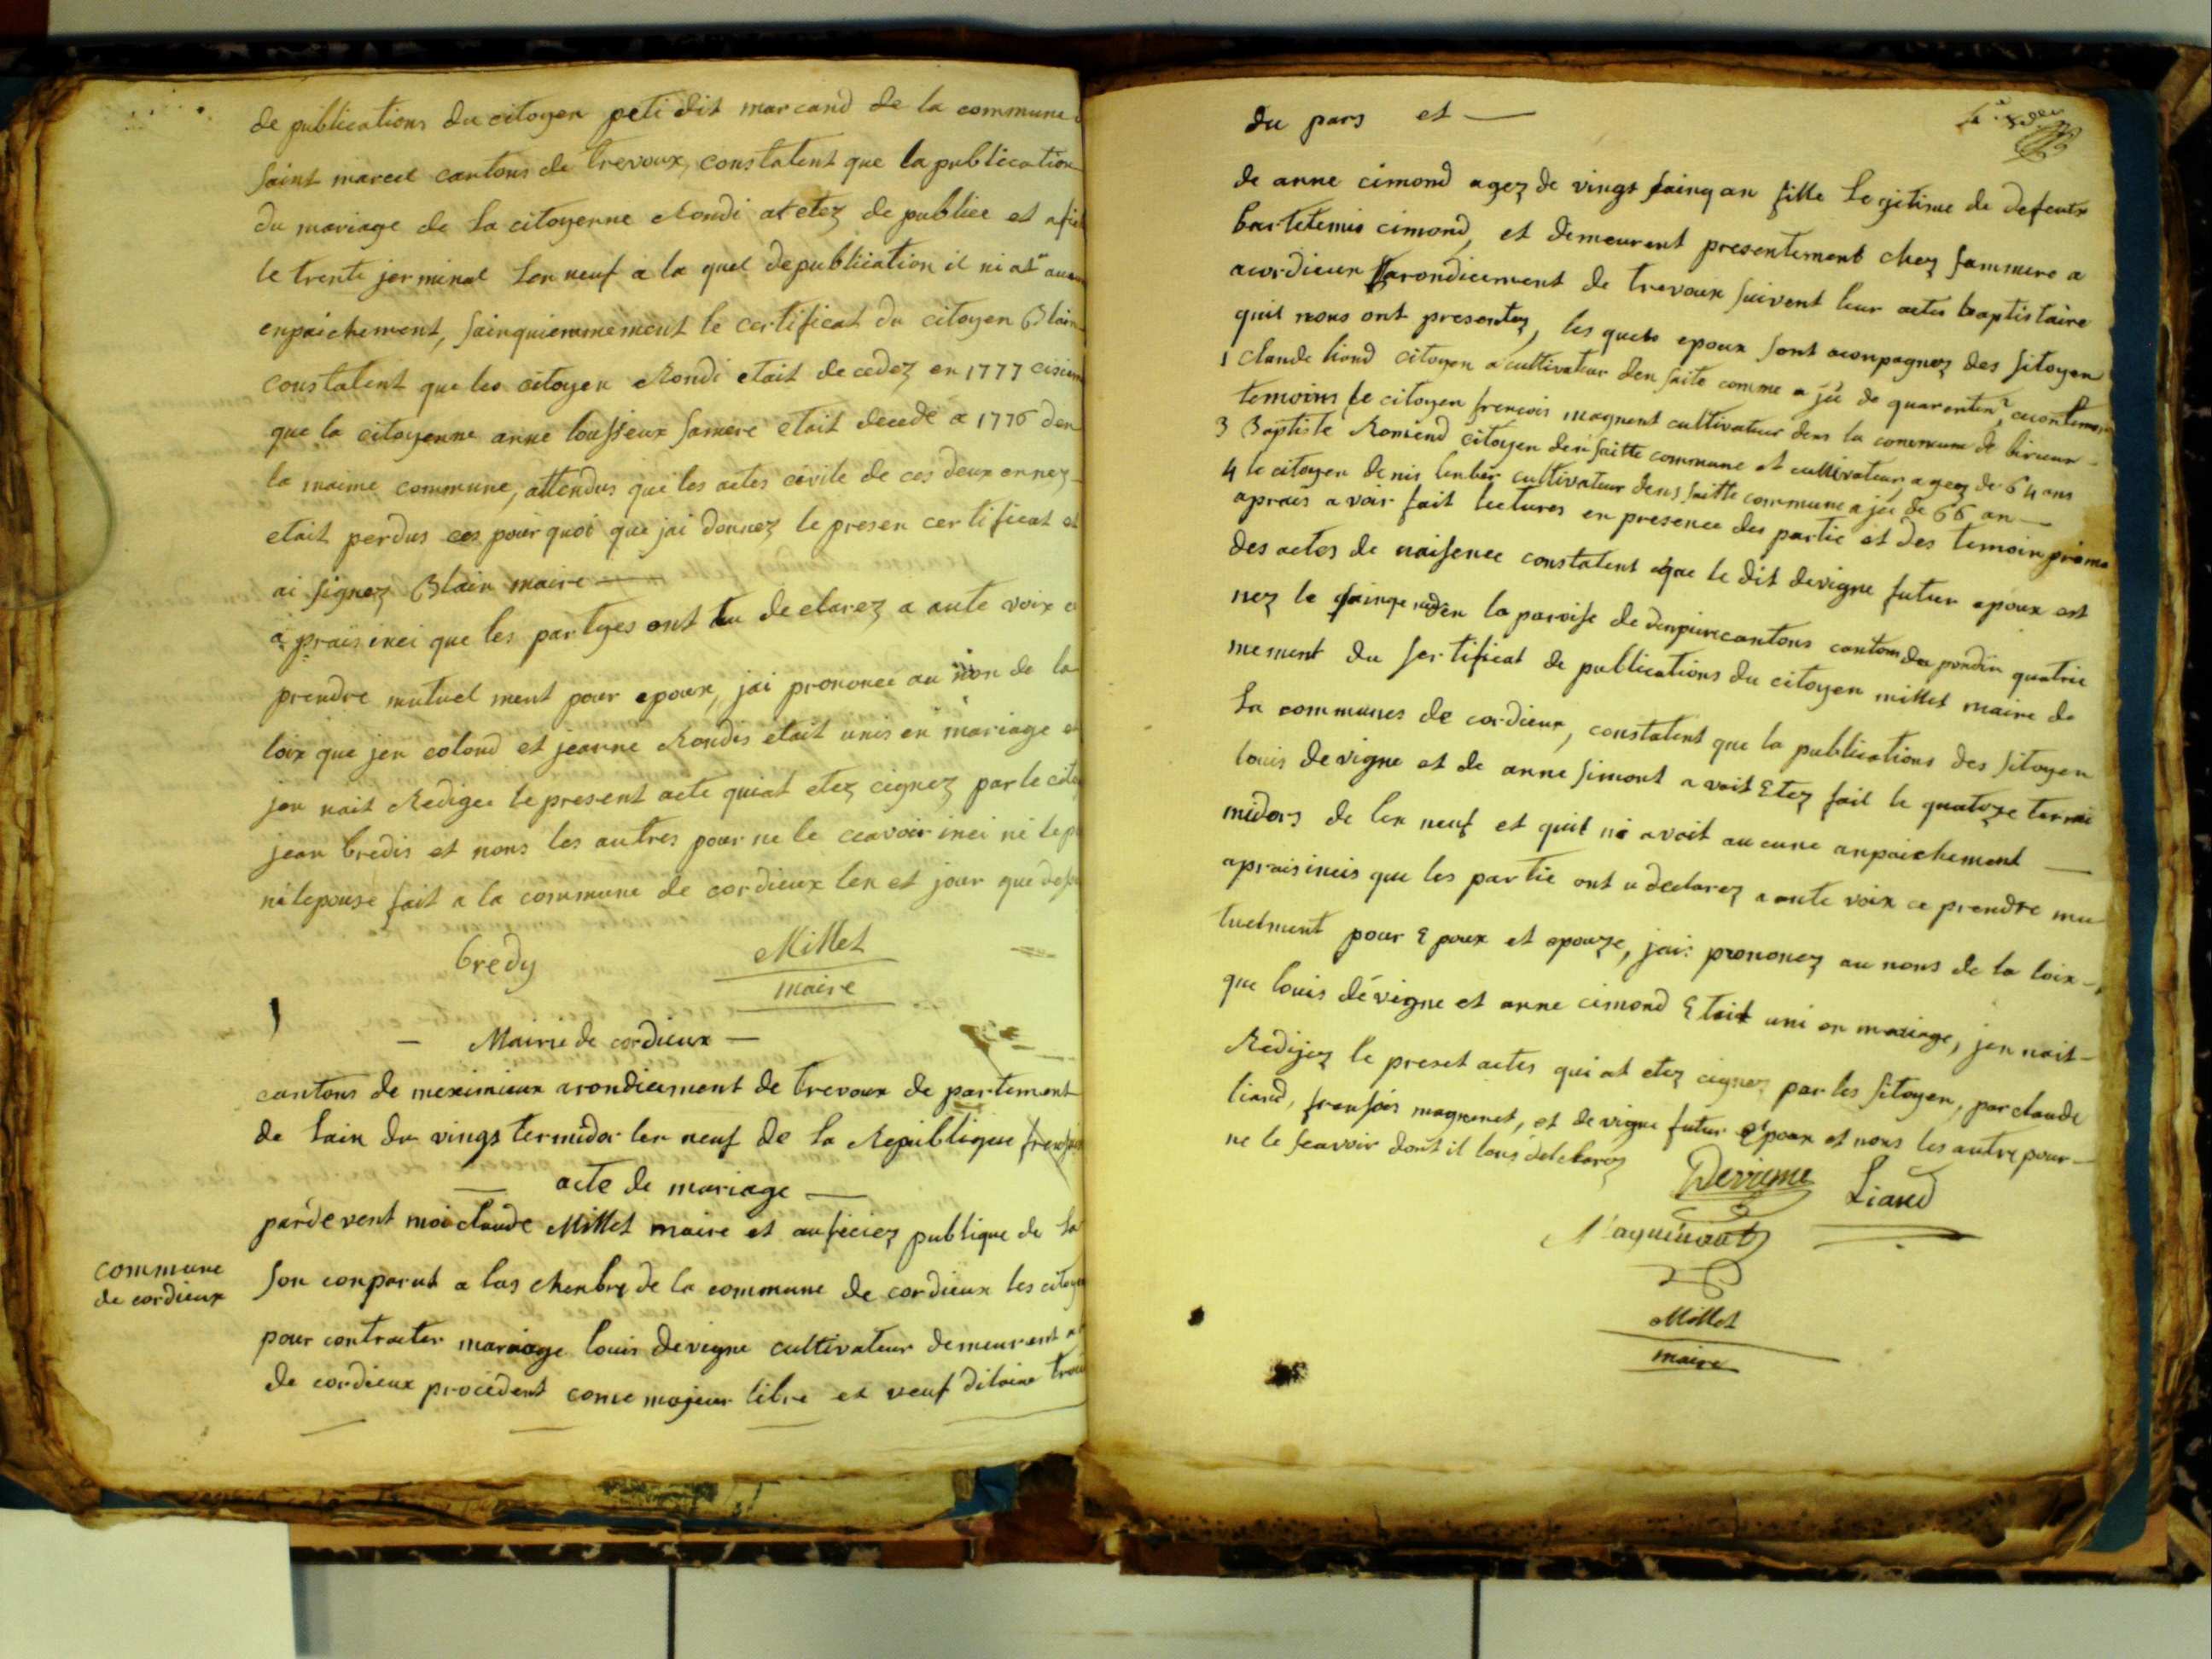 de publications du citoyen peti dit marcand de la commune
saint marcel cantons de trevoux, constatent que la publication
du mariage de la citoyenne Rondi at etez de publiee et afi
le trente jerminal l'en neuf a la quel de publiication il ni at au
enpaichement, sainquiemmement le certificat du citoyen Blain
constatent que leo citoyen Rondi etait decedez en 1777
que la citoyenne anne lousseux samere etait decede a 1776 den
la maime commune, attendus que les actes civile de ces deux annez
etait perdus ces pour quoi que jai donnez le presen certificat et
ai signez Blain maire
a prais inci que les partyes ont u declarez a aute voix
prendre mutuel ment pour epoux, jai prononce au non de la
loix que jen colond et jeanne Rondis etait unis en mariage
jen nait Rediger le present acte qui at etez cignez par le cito
jean bredis et nons les autres pour ne le ceavoir inci ni lep
ni lepouse fait a la commune de cordieux len et jour que de
bredy Millet
maire
Mairie de cordieux
cantons de meximieux arondicement de trevoux de partement
de lain du vings termidor len neuf de la Republique
acte de mariage
pardevent moi claude Millet maire et auficiez publique de la
commune
de cordieux
son conparut a las chenbre de la commune de cordieux les citoye
pour contracter mariage louis devigne cultivateur demeurent a
de cordieux procedent come majeur libre et veuf
du pars et
de anne cimond agez de vings sainq an fille legitime de defeute
bartelemis cimond, et demeurent presentement chez sammere a
acordieux arondicement de trevoux suivent leur actes baptistaire
quil nous ont presentez, les quels epoux sont aconpagnez des sitoyen
1 claude liand citoyen a cultivateur den saite comme a jée de quarente
temoins le citoyen frencois magnent cultivateur dens la commune de birieux
3 Baptiste Romend citoyen den saitte commune et cultivateur, agez de 64 ans
4 le citoyen denis cultivateur dens saitte commune a jée de 66 an
aprais a voir fait lectures en presence des partie et des temoin
des actes de naisence constatent que le dit devigne futur epoux est
nez le den la paroise de cantons quatrie
mement du sertificat de publications du citoyen millet maire de
la communes de cordieux, constatent que la publications des sitoyen
louis devigne et de anne simont avait etez fait le quatoze termi
midors de len neuf et quil ni avait au cune anpaichement
aprais incis que les partie ont u declarez a aute voix ce prendre mu
tuelment pour epoux et epouze, jai prononcez au nons de la loix
que louis dévigne et anne cimond etait uni en mariage, jen nait
Redijez le preset actes qui at etez cignez par les sitoyen, par claude
liand, fransois magnenet, et devigne futur epoux et nons les autre pour
ne le scavoir dont il
Devigne Liand
Millet
maire